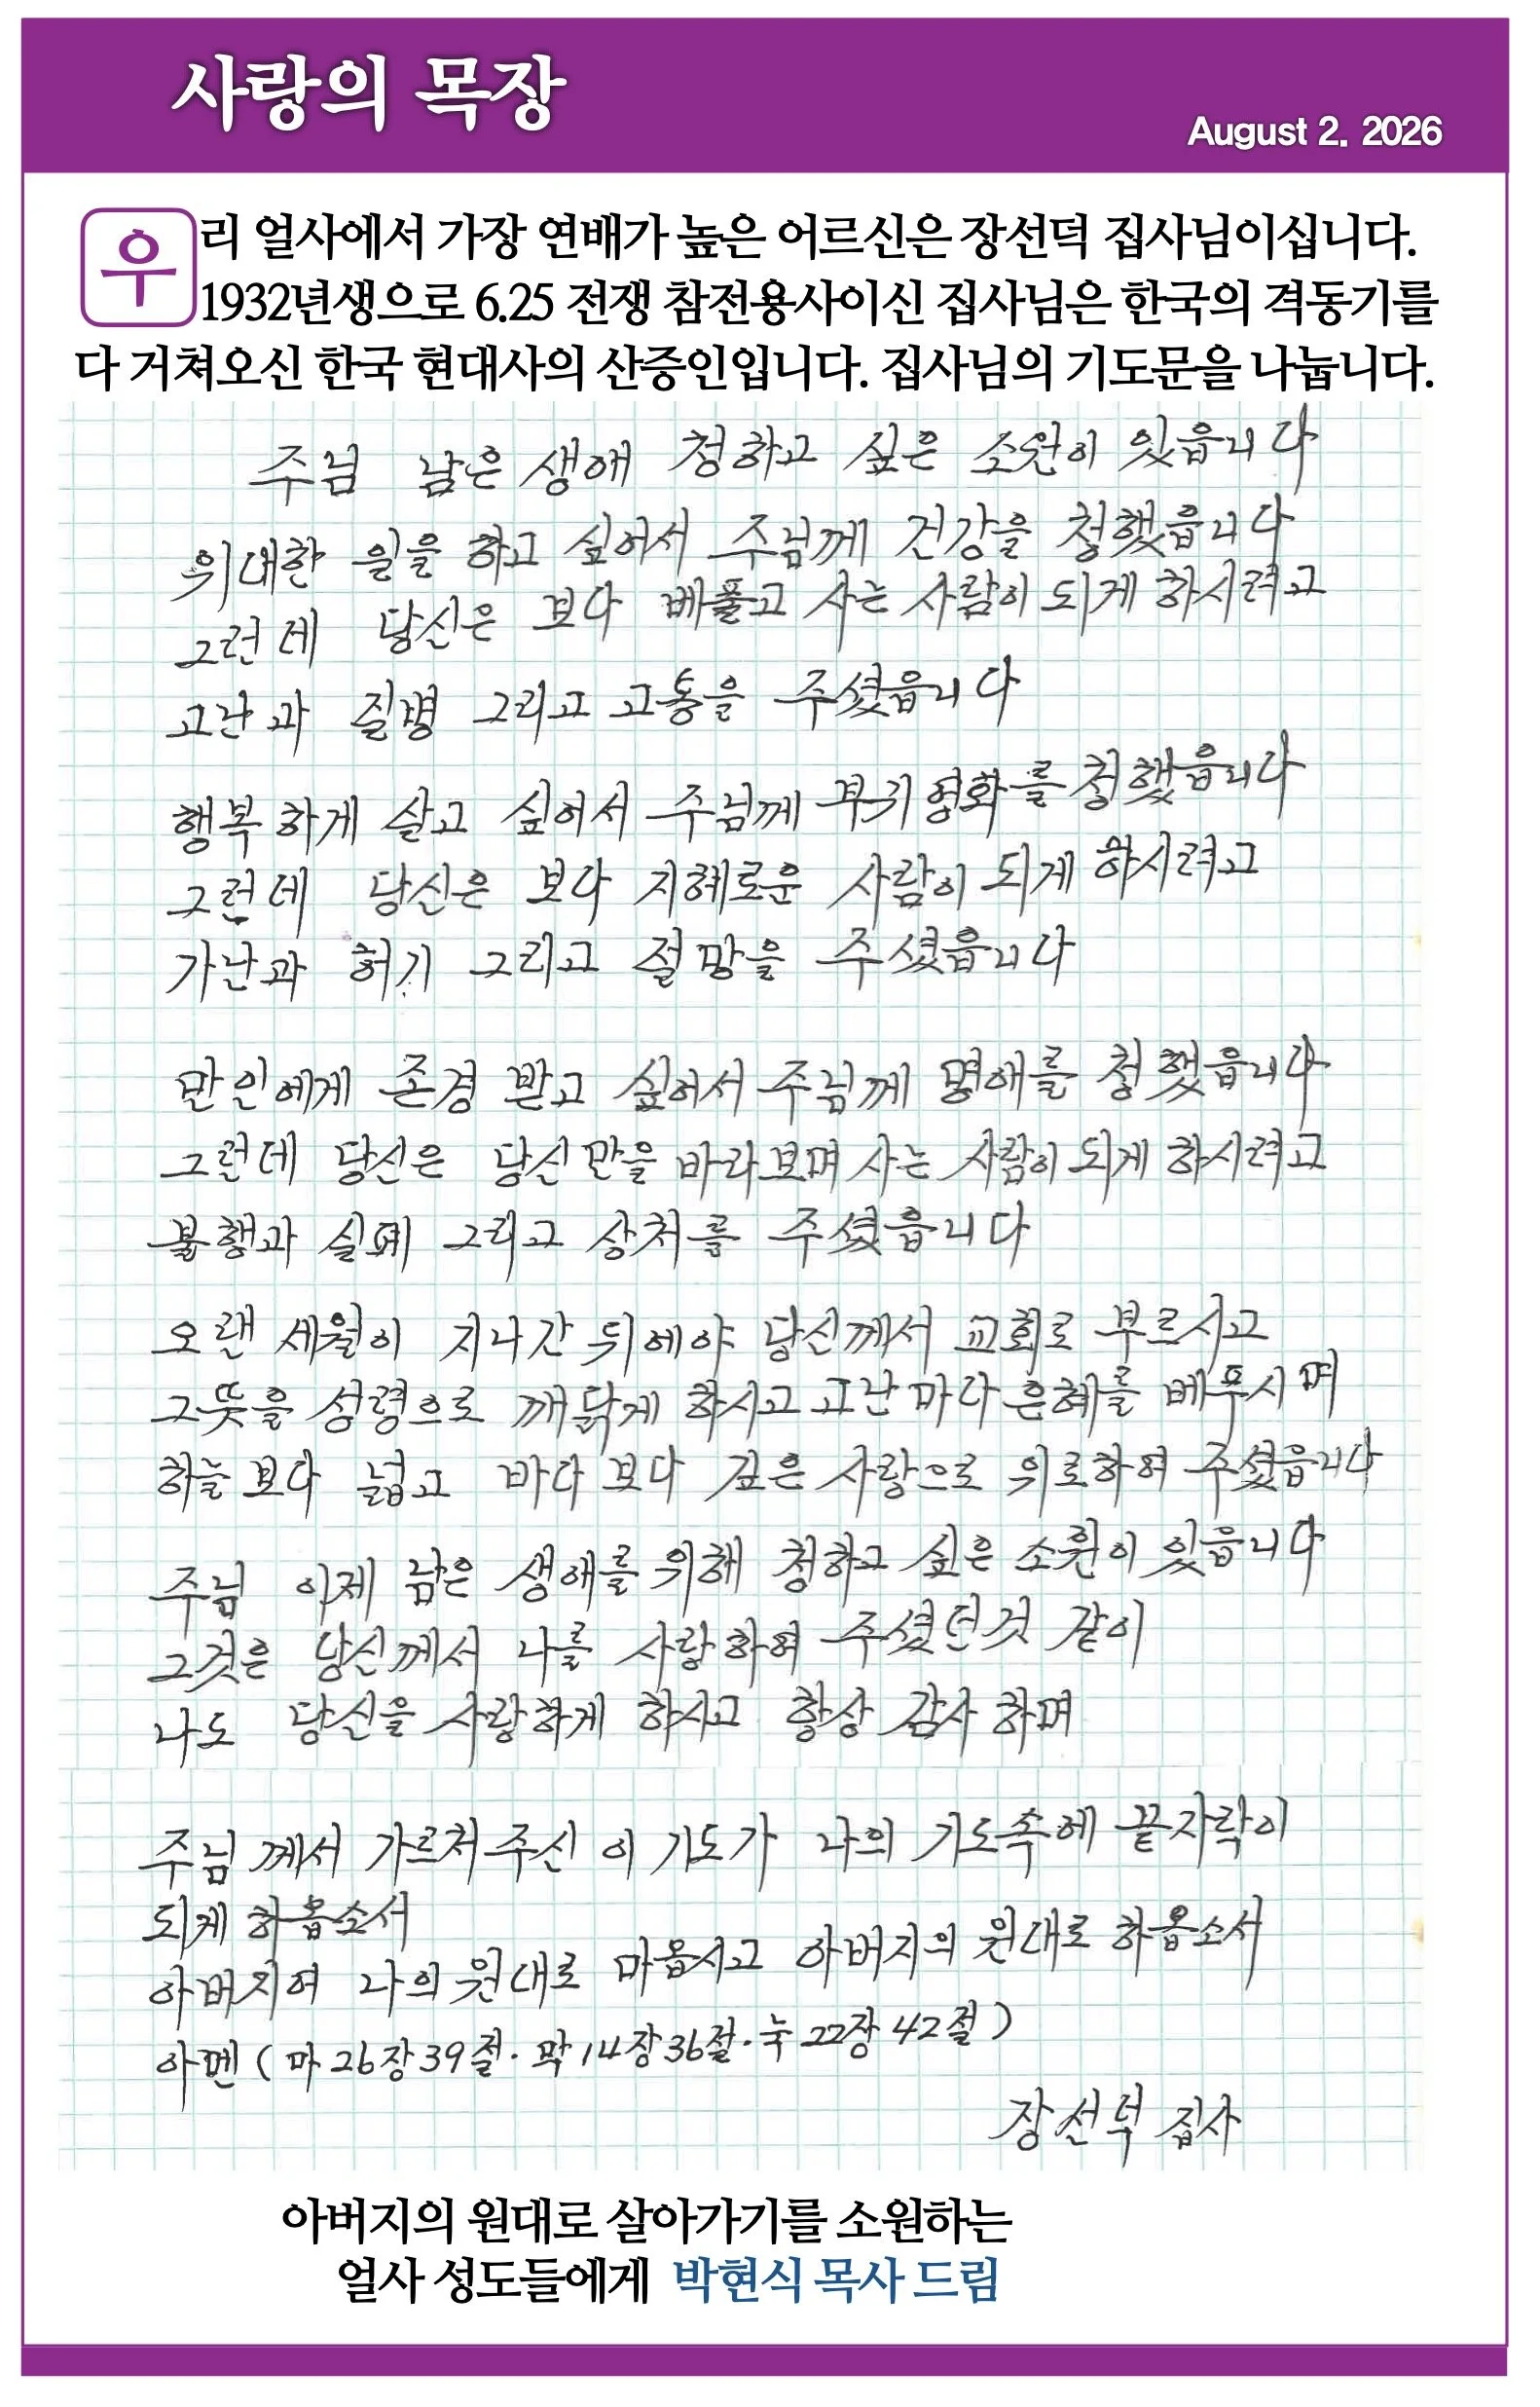 사랑의 목장
August 2. 2026
우리 얼사에서 가장 연배가 높은 어르신은 장선덕 집사님이십니다.
1932년생으로 6.25 전쟁 참전용사이신 집사님은 한국의 격동기를
다 거쳐오신 한국 현대사의 산증인입니다. 집사님의 기도문을 나눕니다.
주님 남은 생애 청하고 싶은 소원이 있읍니다
위대한 일을 하고 싶어서 주님께 건강을 청했읍니다
그런데 당신은 보다 베풀고 사는 사람이 되게 하시려고
고난과 질병 그리고 고통을 주셨읍니다
행복하게 살고 싶어서 주님께 부귀영화를 청했읍니다
그런데 당신은 보다 지혜로운 사람이 되게 하시려고
가난과 허기 그리고 절망을 주셨읍니다
만인에게 존경 받고 싶어서 주님께 명애를 청했읍니다
그런데 당신은 당신만을 바라보며 사는 사람이 되게 하시려고
불행과 실폐 그리고 상처를 주셨읍니다
오랜 세월이 지나간 뒤에야 당신께서 교회로 부르시고
그뜻을 성령으로 깨닭게 하시고 고난마다 은혜를 베푸시며
하늘보다 넓고 바다보다 깊은 사랑으로 위로하여 주셨읍니다
주님 이제 남은 생애를 위해 청하고 싶은 소원이 있읍니다
그것은 당신께서 나를 사랑하여 주셨던것 같이
나도 당신을 사랑하게 하시고 항상 감사하며
주님께서 가르처주신 이 기도가 나의 기도속에 끝자락이
되게 하옵소서
아버지여 나의 원대로 마옵시고 아버지의 원대로 하옵소서
아멘 (마 26장 39절. 막 14장 36절. 눅 22장 42절)
장선덕 집사
아버지의 원대로 살아가기를 소원하는
얼사 성도들에게 박현식 목사 드림